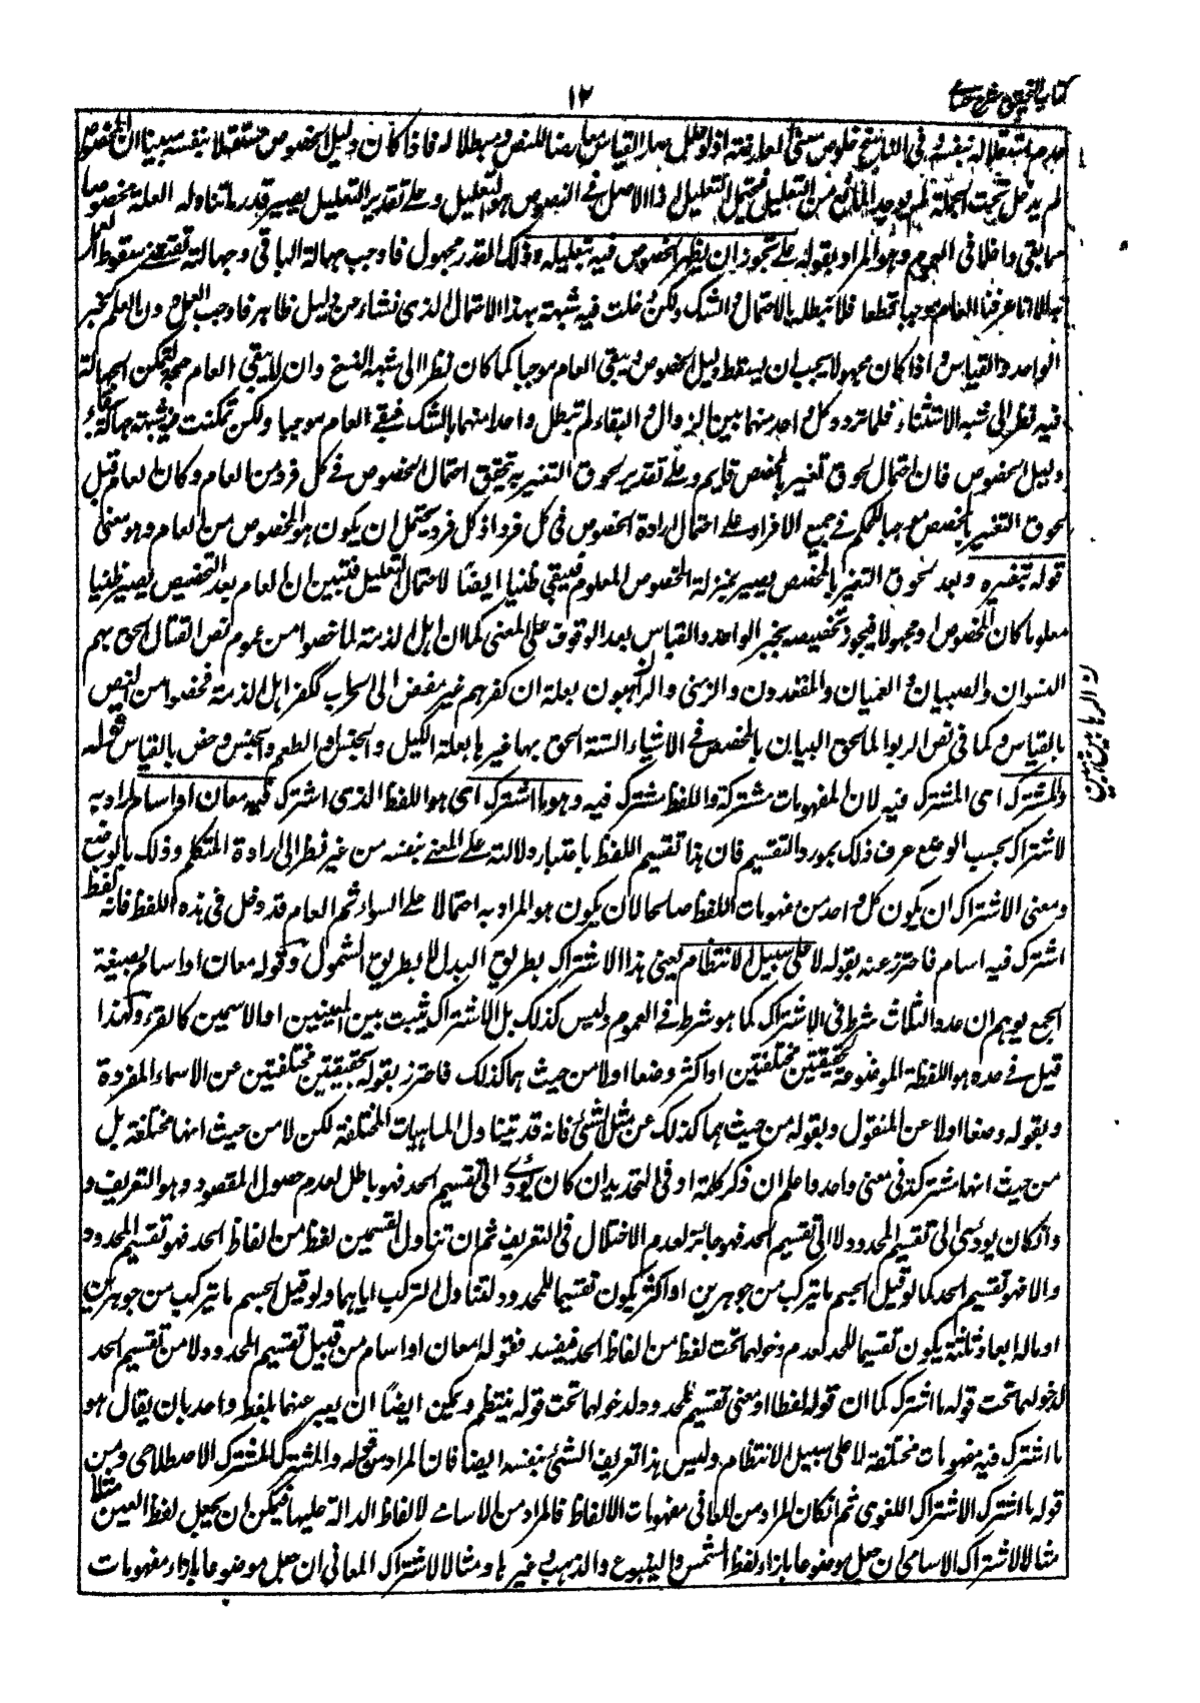 كتاب التحقيق شرح حسامي
١٢
عدم استقلاله بنفسه وفي الناسخ خلوص معنى المعارضة اذ لو علل صار القياس معارضا للنص ومبطلا له فاذا كان دليل الخصوص مستقلا بنفسه مبينا ان المخصوص
لم يدخل تحت الجملة لم يوجد المانع من التعليل فيحتمل التعليل اذ الاصل في النصوص هو التعليل وعلى تقدير التعليل يصير قدر ما تناوله العلة مخصوصا
مما بقي داخلا في العموم وهو المراد بقوله على تجوز ان يظهر الخصوص فيه بتعليله وذلك المقدر مجهول فاوجب جهالة الباقي وجهالته تقتضي سقوط العمل
به الا انا عرفنا العام موجبا قطعا فلا نبطله بالاحتمال والشك ولكن دخلت فيه شبهة بهذا الاحتمال الذي نشاء من دليل ظاهر فاوجب العمل دون العلم كخبر
الواحد والقياس واذا كان مجهولا يجب ان يسقط دليل الخصوص ويبقى العام موجبا كما كان نظرا الى شبه النسخ وان لا يبقى العام حجة لتمكن الجهالة
فيه نظرا الى شبه الاستثناء فلما تردد كل واحد منهما بين الزوال والبقاء لم تبطل واحدا منهما بالشك فبقي العام موجبا ولكن تمكنت فيه شبهة جهالة بقاء
دليل الخصوص فان احتمال لحوق تغير بالمخصص قايم وعلى تقدير لحوق التغير به يتحقق احتمال الخصوص في كل فرد من العام وكان العام قبل
لحوق التغير بالمخصص موجبا للحكم في جميع الافراد على احتمال ارادة الخصوص في كل فرد اذ كل فرد يحتمل ان يكون هو المخصوص من العام وهو معنى
قوله بتغيره وبعد لحوق التغير بالمخصص يصير بمنزلة المخصوص المعلوم فيبقى ظنيا ايضا لاحتمال التعليل فتبين ان العام بعد التخصيص يصير ظنيا
معلوما كان المخصوص او مجهولا فيجوز تخصيصه بخبر الواحد والقياس بعد الوقوف على المعنى كما ان اهل الذمة لما خصوا من عموم نص القتال الحق بهم
النسوان والصبيان والعميان والمقعدون والزمنى والراهبون بعلة ان كفرهم غير مفض الى الحراب ككفر اهل الذمة فخصوا من النص
بالقياس وكما في نص الربوا لما لحق البيان بالمخصص في الاشياء الستة الحق بها غيرها بعلة الكيل والجنس او الطعم والجنس وخص بالقياس قوله
والمشترك اى المشترك فيه لان المفهومات مشتركة واللفظ مشترك فيه وهو ما اشترك اى هو اللفظ الذى اشترك فيه معان او اسام المراد به
الاشتراك بحسب الوضع عرف ذلك بمورد التقسيم فان هذا تقسيم اللفظ باعتبار دلالته على المعنى بنفسه من غير نظر الى ارادة المتكلم وذلك بالوضع
ومعنى الاشتراك ان يكون كل واحد من مفهومات اللفظ صالحا لان يكون هو المراد به احتمالا على السواء ثم العام قد دخل في هذه اللفظ فانه لفظ
اشترك فيه اسام فاحترز عنه بقوله لا على سبيل الانتظام يعني هذا الاشتراك بطريق البدل لا بطريق الشمول وقوله معان او اسام بصيغة
الجمع يوهم ان عدد الثلاث شرط في الاشتراك كما هو شرط في العموم وليس كذلك بل الاشتراك يثبت بين المعنيين او الاسمين كالقرء ولهذا
قيل في حده هو اللفظة الموضوعة لحقيقتين مختلفتين او اكثر وضعا اولا من حيث هما كذلك فاحترز بقوله لحقيقتين مختلفتين عن الاسماء المفردة
وبقوله وضعا اولا عن المنقول وبقوله من حيث هما كذلك عن مثل الشئ فانه قد يتناول الماهيات المختلفة لكن لا من حيث انها مختلفة بل
من حيث انها مشتركة في معنى واحد واعلم ان ذكر كلمة او في التحديد ان كان يؤدى الى تقسيم الحد فهو باطل لعدم حصول المقصود وهو التعريف و
وان كان يودى الى تقسيم المحدود لا الى تقسيم الحد فهو جائز لعدم الاختلال في التعريف ثم ان تناول القسمين لفظ من الفاظ الحد فهو تقسيم المحدود
والا فهو تقسيم الحد كما لو قيل الجسم ما يتركب من جوهرين او اكثر يكون تقسيما للمحدود لتناول التركب اياهما ولو قيل الجسم ما يتركب من جوهرين
او ما له ابعاد ثلثة يكون تقسيما للحد لعدم دخولهما تحت لفظ من الفاظ الحد فيفسد فقوله معان او اسام من قبيل تقسيم المحدود لا من تقسيم الحد
لدخولهما تحت قوله ما اشترك كما ان قوله لفظا او معنى تقسيم للمحدود لدخولهما تحت قوله ينتظم ويمكن ايضا ان يعبر عنهما بلفظ واحد بان يقال هو
ما اشترك فيه مفهومات مختلفة لا على سبيل الانتظام وليس هذا تعريف الشئ بنفسه ايضا فان المراد من قوله والمشترك المشترك الاصطلاحى ومن
قوله ما اشترك الاشتراك اللغوى ثم ان كان المراد من المعاني مفهومات الالفاظ فالمراد من الاسامي الالفاظ الدالة عليها فيمكن ان يجعل لفظ العين مثلا
مثالا لاشتراك الاسامي ان جعل موضوعا بازاء لفظ الشمس والينبوع والذهب وغيرها ومثالا لاشتراك المعاني ان جعل موضوعا بازاء مفهومات